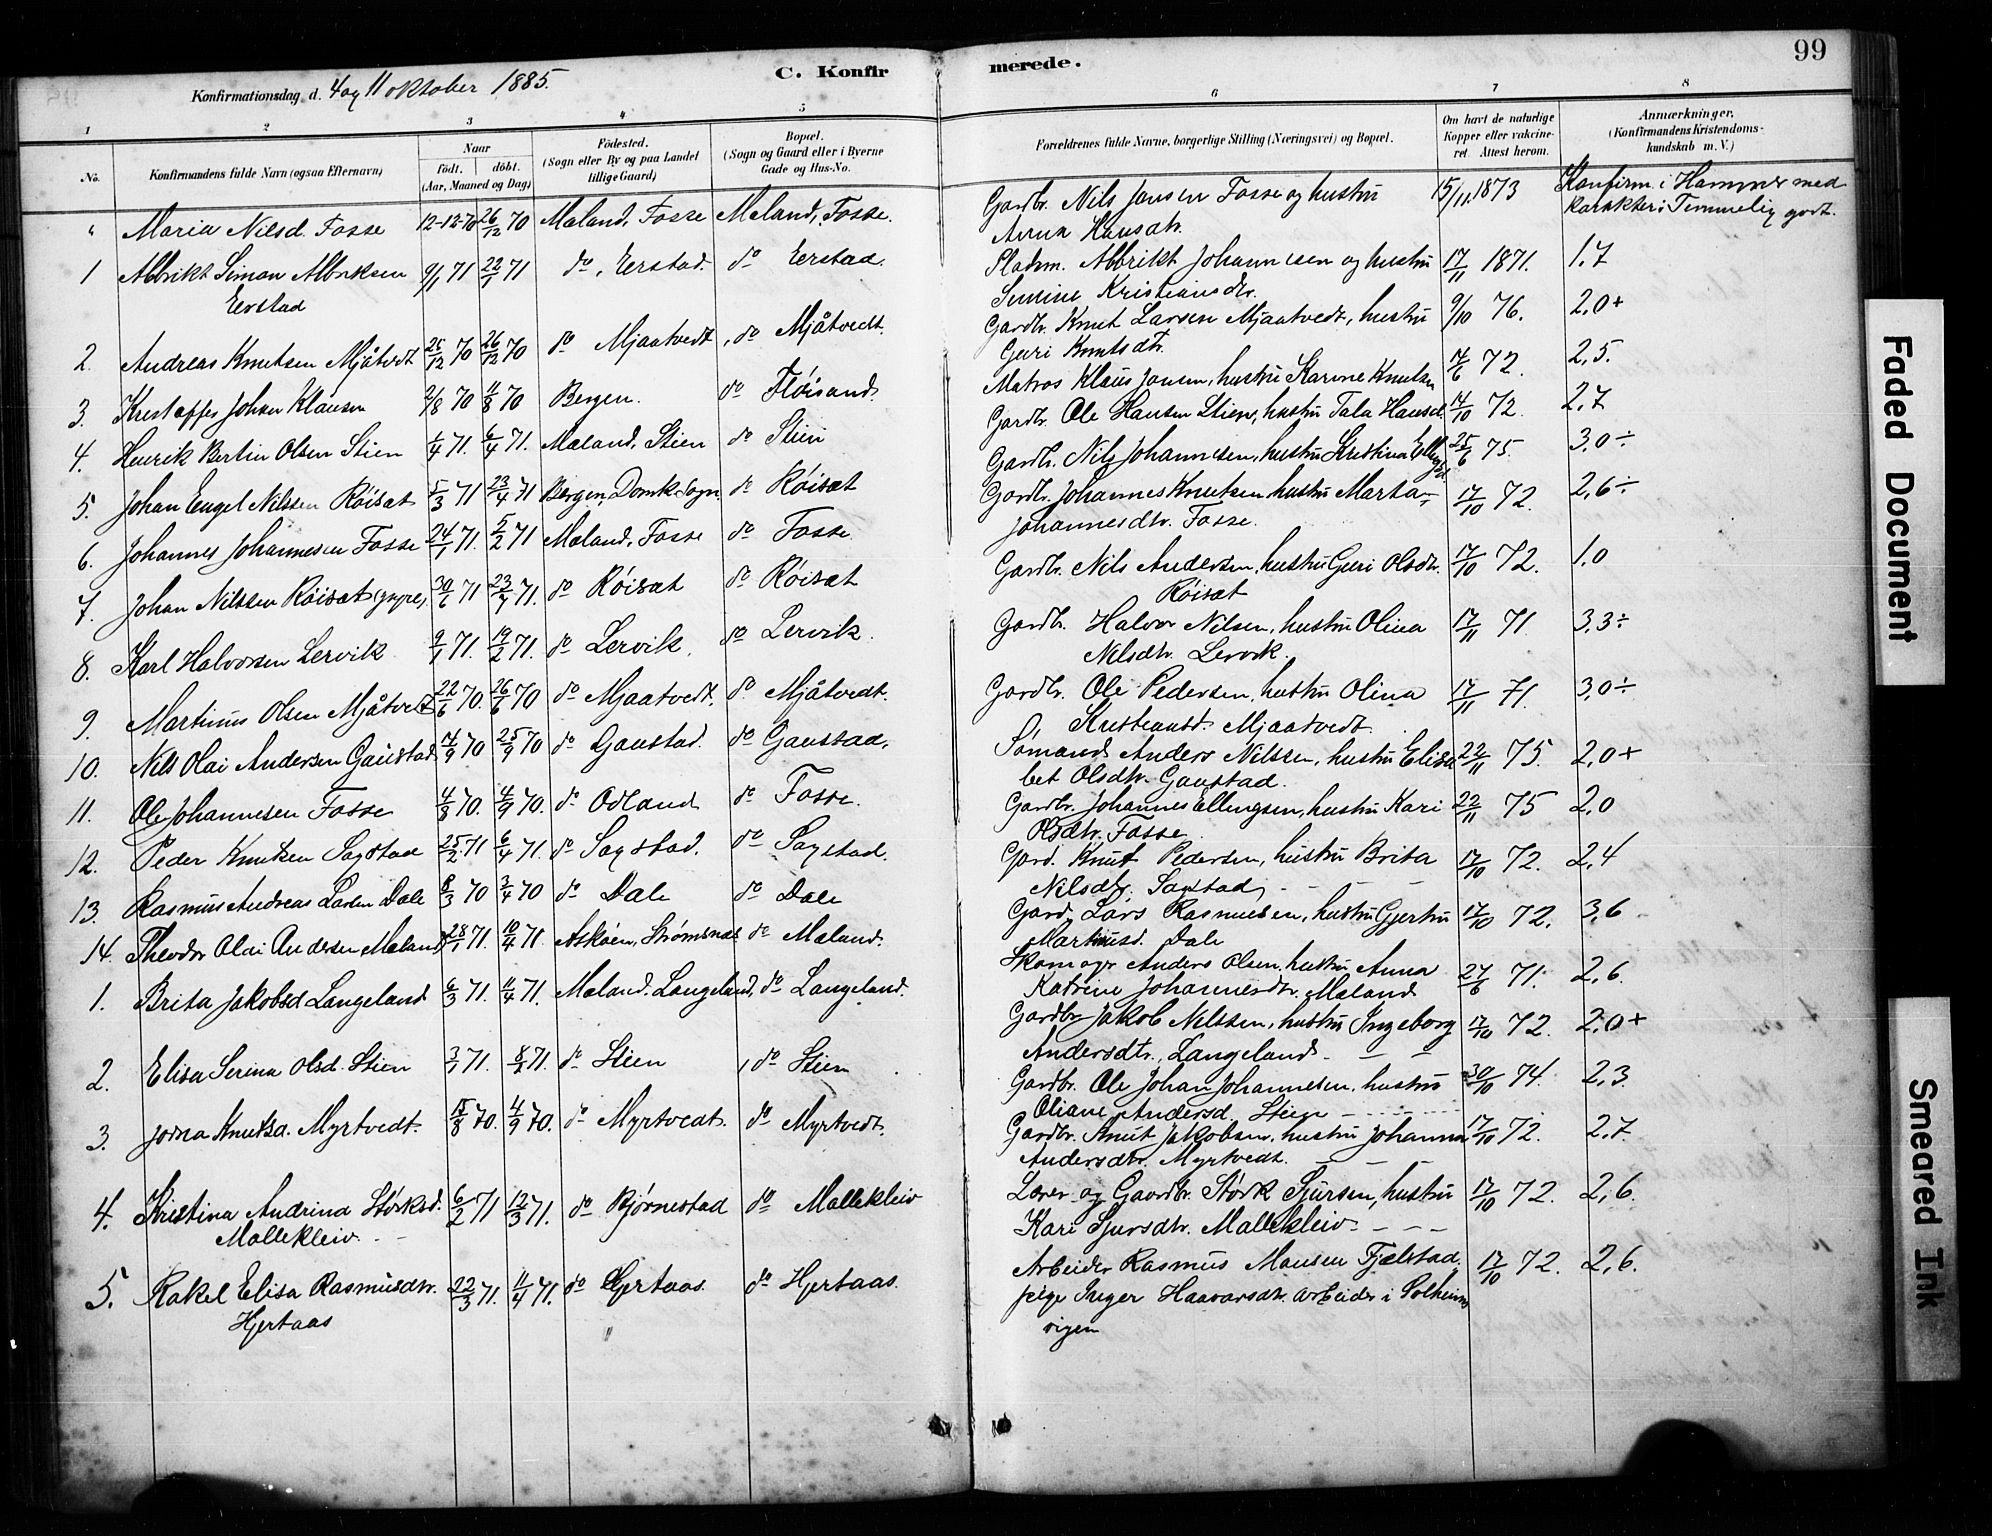 99
C. Konfirmerede.
Konfirmationsdag d. 4 og 11 oktober 1885.
1 2 3 4 5 6 7 8
No. Konfirmandens fulde Navn (ogsaa Efternavn) Naar födt. döbt. (Aar, Maaned og Dag) Födested. (Sogn eller By og paa Landet tillige Gaard) Bopæl. (Sogn og Gaard eller i Byerne Gade og Hus-No. Forældrenes fulde Navne, borgerlige Stilling (Næringsvei) og Bopæl. Om havt de naturlige Kopper eller vakcineret. Attest herom. Anmærkninger. (Konfirmandens Kristendomskundskab m. V.)
" Maria Nilsd. Fosse 12-12-70 26/12 70 Mæland, Fosse Mæland, Fosse. Gardbr. Nils Jansen Fosse og hustru 15/11.1873 Konfirm. i Hammer med
Anna Hansdtr. karakter: Temmelig godt.
1 Albrikt Simon Albriktsen 9/1 71 22/1 71 do, Eerstad. do Eerstad. Pladsm. Albrikt Johannesen og hustru 17/11 1871. 1.7
Eerstad Semine Kristiansdtr.
2. Andreas Knutsen Mjåtvedt 25/12 70 26/12 70 do Mjaatvedt, do Mjåtvedt. Gardbr. Knut Larsen Mjaatvedt, hustru 9/10 76. 2,0+
Guri Knutsdtr.
3. Kristoffer Johan Klausen 2/8 70 11/8 70 Bergen. do Fløisand. Matros Klaus Jansen, hustru Karine Knutsen 17/6 72. 2,5.
4. Henrik Bertin Olsen Stien 1/4 71. 6/4 71. Mæland, Stien do Stien Gardbr. Ole Hansen Stien, hustru Tala Hansd. 17/10 72. 2,7
5. Johan Engel Nilssen Røisæt 5/3 71 23/4 71 Bergen, Domk. Sogn. do Røisæt Gardbr. Nils Johannesen, hustru Kristina Ellingsd. 25/6 75. 3,0÷
6. Johannes Johannesen Fosse 24/1 71. 5/2 71 Mæland, Fosse do Fosse. Gardbr. Johannes Knutsen, hustru Marta 17/10 72. 2,6÷
Johannesdtr. Fosse.
7. Johan Nilssen Røisæt (yngre) 30/6 71 23/7 71. do Røisæt do Røisæt Gardbr. Nils Andersen, hustru Guri Olsdtr. 17/10 72. 1.0
Røisæt
8. Karl Halvorsen Lervik 9/1 71. 19/2 71. do Lervik. do Lervik. Gardbr. Halvor Nilsen, hustru Olina 17/11 71. 3,3÷
Nilsdtr. Lervik.
9. Martinus Olsen Mjåtvedt 22/6 70. 26/6 70 do Mjaatvedt. do Mjåtvedt. Gardbr. Ole Pedersen, hustru Olina 17/11 71. 3,0÷
Kristiansd. Mjaatvedt.
10. Nils Olai Andersen Gaustad 14/9 70 25/9 70 do Gaustad. do Gaustad. Sømand Anders Nilssen, hustru Elisa 22/11 75. 2,0+
bet Olsdtr. Gaustad.
11. Ole Johannesen Fosse 4/8 70. 4/9 70. do Odland do Fosse. Gardbr. Johannes Ellingsen, hustru Kari 22/11 75 2,0
Olsdtr. Fosse
12. Peder Knutsen Sagstad 25/2 71 6/4 71. do Sagstad. do Sagstad. Gard. Knut Pedersen, hustru Brita 17/10 72. 2,4
Nilsdtr. Sagstad
13. Rasmus Andreas Larsen Dale 8/3 70 3/4 70 do Dale do Dale Gard. Lars Rasmussen, hustru Gjertru 17/10 72. 3,6
Martinusd. Dale
14. Theodor Olai Andersen Mæland 28/1 71. 10/4 71. Askøen, Strømsnæs do Mæland. Skomager Anders Olsen, hustru Anna 27/6 71. 2,6
Katrine Johannesdtr. Mæland
1. Brita Jakobsd Langeland 6/3 71. 11/4 71. Mæland. Langeland, do Langeland. Gardbr Jakob Nilssen, hustru Ingeborg 17/10 72. 2.0+
Andersdtr., Langeland
2. Elisa Serina Olsd. Stien 3/1 71. 8/1 71. do Stien do Stien Gardbr. Ole Johan Johannesen, hustru 30/10 74. 2,3.
Oliane Andersd. Stien
3. Jorna Knutsd. Myrtvedt. 15/8 70. 4/9 70. do Myrtvedt. do Myrtvedt. Gardbr. Knut Jakobsen, hustru Johanna 17/10 72. 2,7.
Andersdtr. Myrtvedt.
4. Kristina Andrina Størksd. 6/2 71 12/3 71. do Bjørnestad do Mollekleiv Lærer og Gaardbr. Størk Sjursen, hustru 17/10 72. 2,6.
Mollekleiv Kari Sjursdtr. Mollekleiv
5. Rakel Elisa Rasmusdtr. 22/3 71. 11/4 71. do Hjertaas. do Hjertaas. Arbeider Rasmus Monsen Fjelstad, 17/10 72. 2,6.
Hjertaas " pige Inger Haavarsdtr. arbeider i Solheims
vigen
Faded Document
Smeared Ink